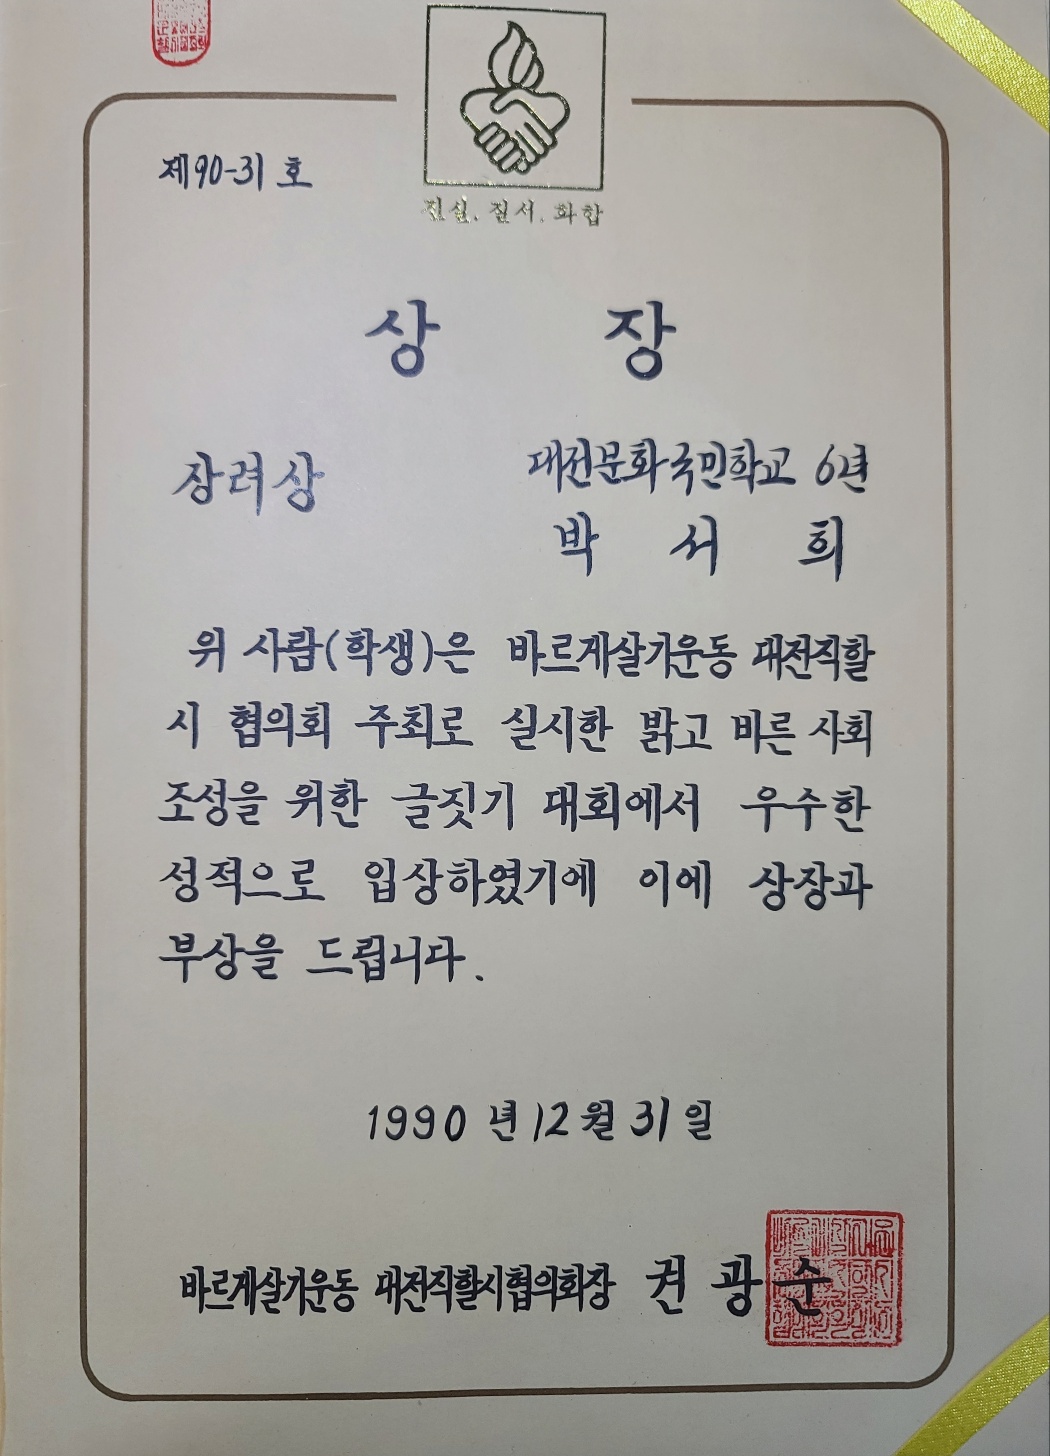 제90-31 호
진실. 질서. 화합
상 장
장려상
대전문화국민학교 6년
박 서 희
위 사람(학생)은 바르게살기운동 대전직할
시 협의회 주최로 실시한 밝고 바른 사회
조성을 위한 글짓기 대회에서 우수한
성적으로 입상하였기에 이에 상장과
부상을 드립니다.
1990 년 12 월 31 일
바르게살기운동 대전직할시협의회장 권 광 순